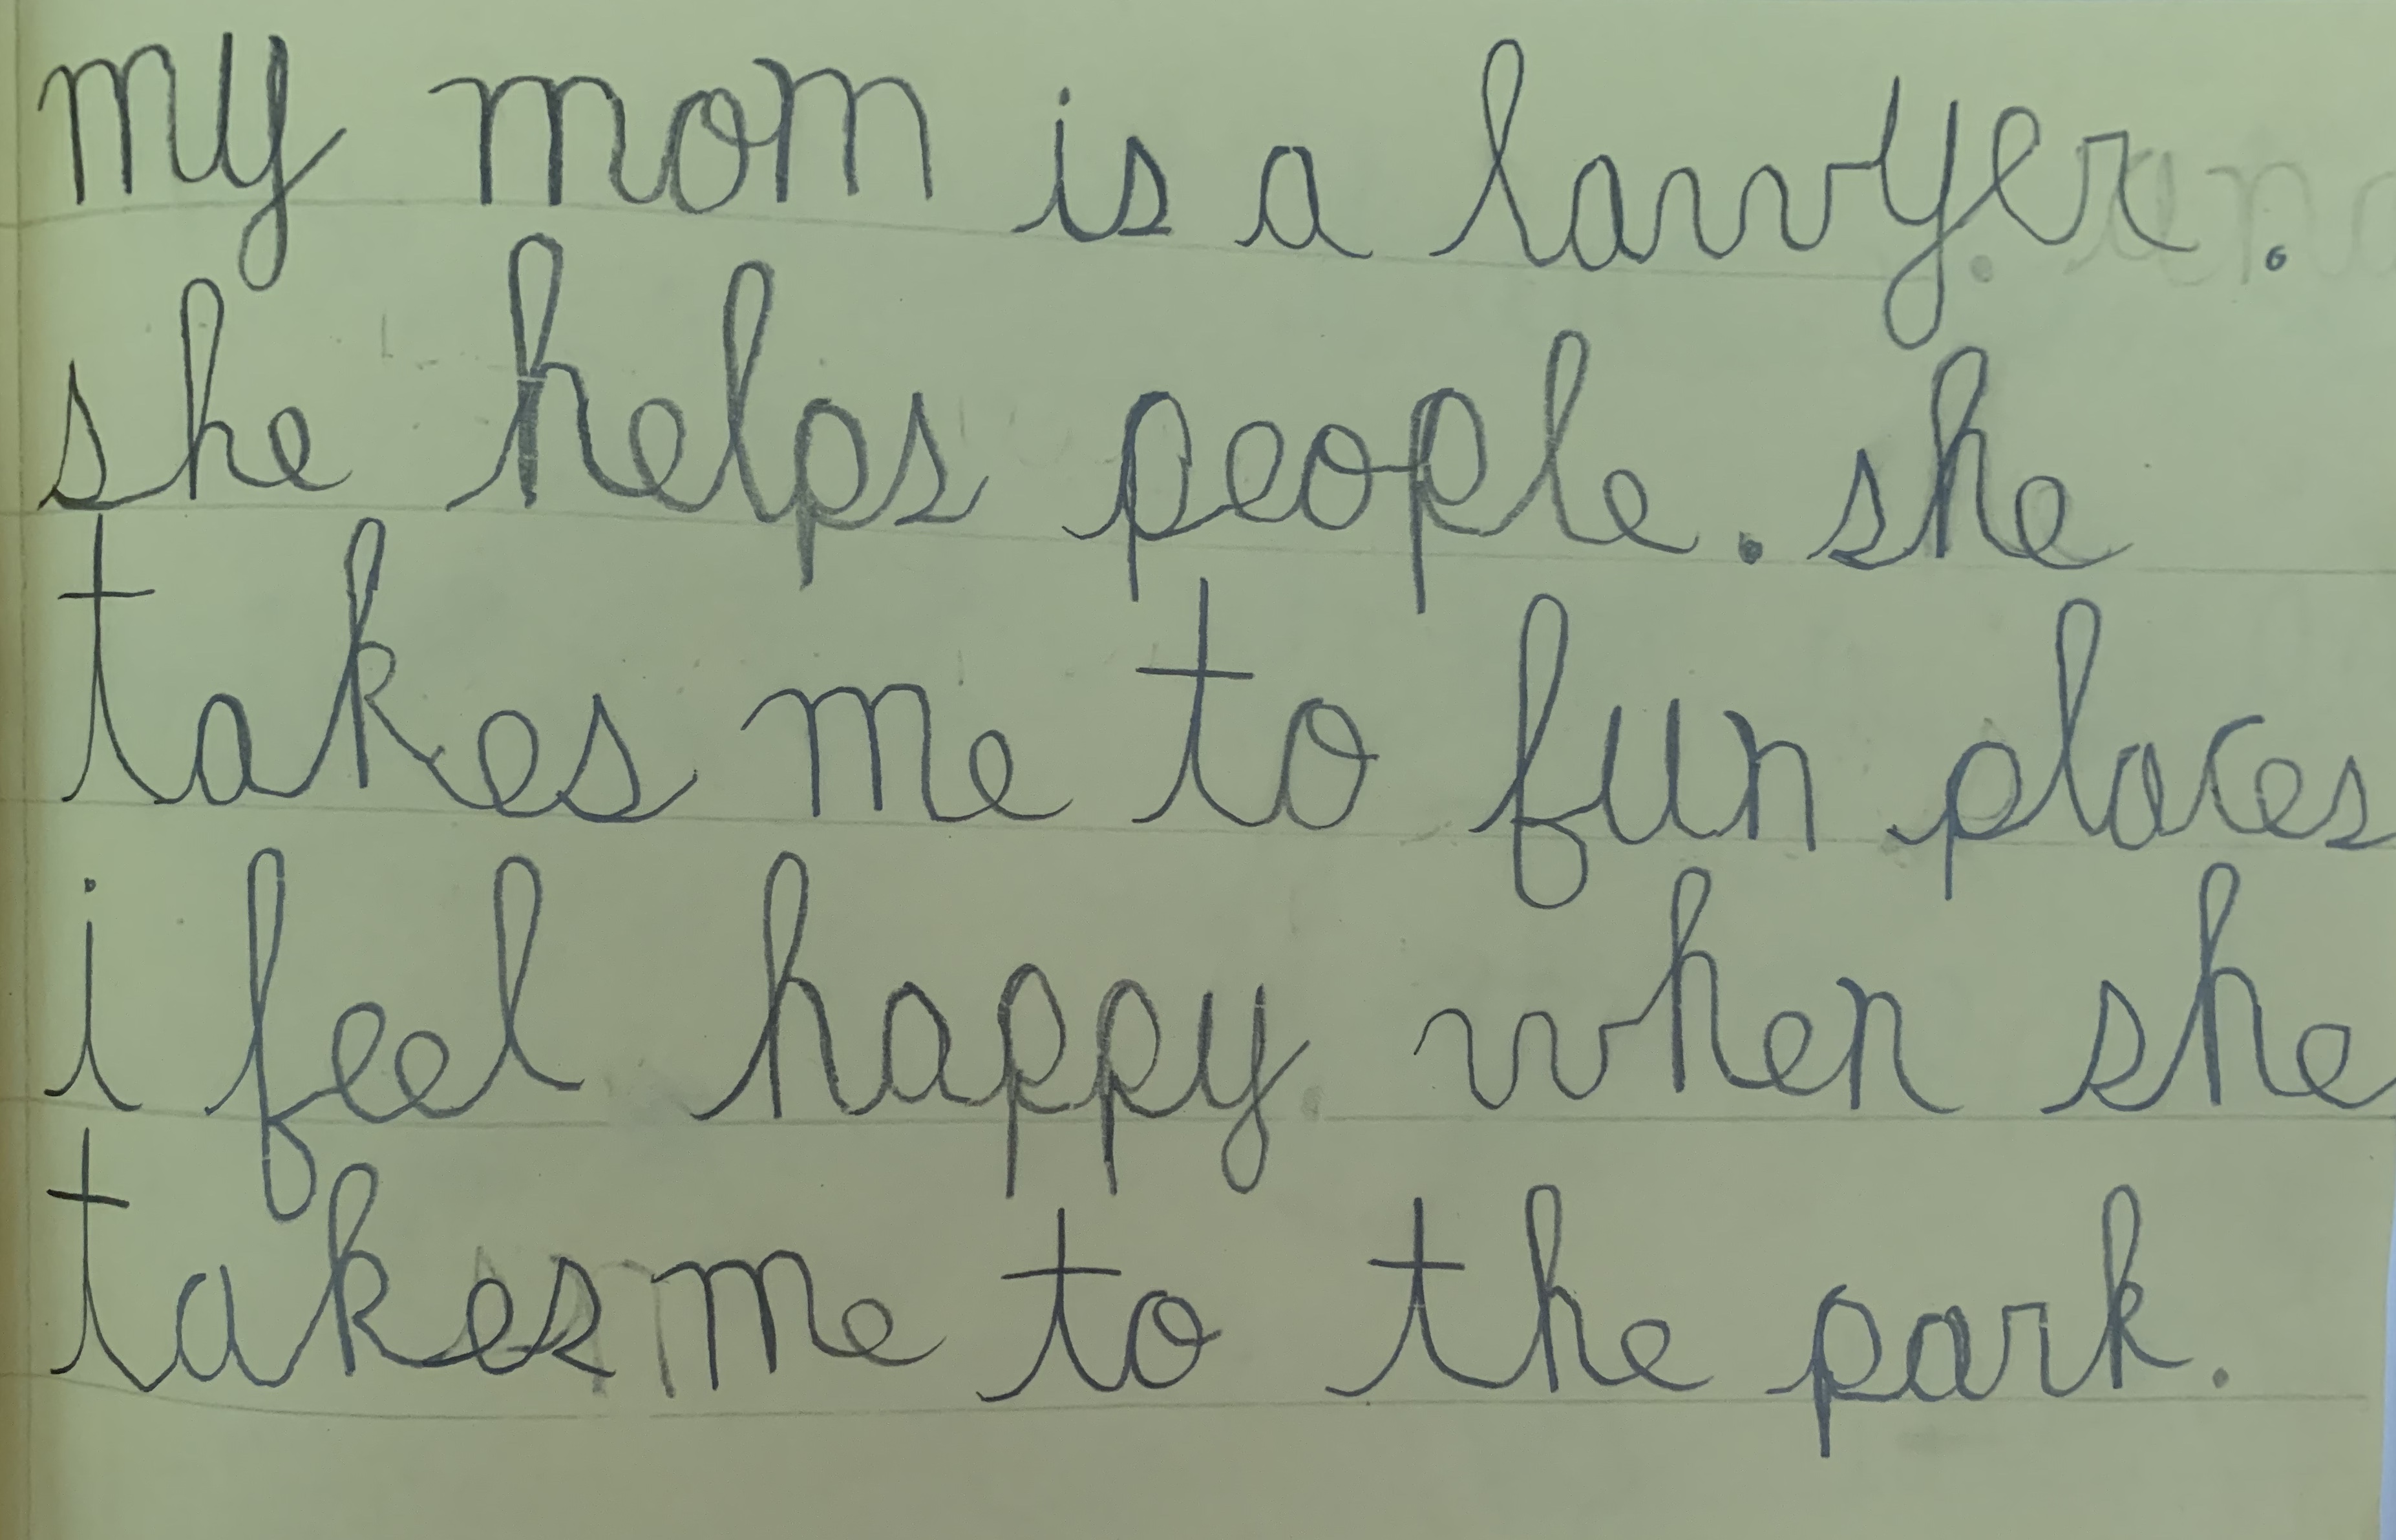 my mom is a lawyer.
she helps people. she
takes me to fun places
i feel happy when she
takes me to the park.